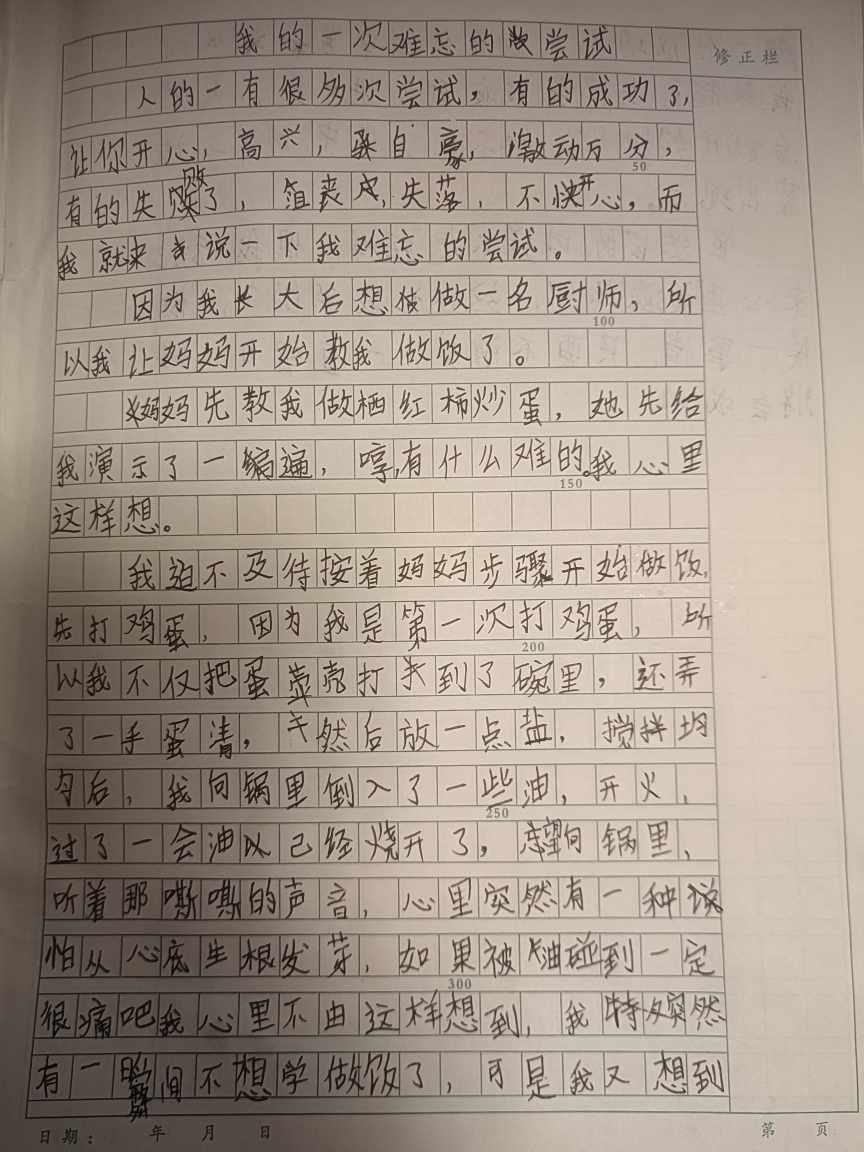 我的一次难忘的尝试
修正栏
人的一有很多次尝试，有的成功了，
让你开心，高兴，自豪，激动万分，
50
有的失败了，沮丧，失落，不开心，而
我就来说一下我难忘的尝试。
因为我长大后想做一名厨师，所
100
以我让妈妈开始教我做饭了。
妈妈先教我做栖红柿炒蛋，她先给
我演示了一遍，哼，有什么难的。我心里
150
这样想。
我迫不及待按着妈妈步骤开始做饭，
先打鸡蛋，因为我是第一次打鸡蛋，所
200
以我不仅把蛋壳打到了碗里，还弄
了一手蛋清，然后放一点盐，搅拌均
匀后，我向锅里倒入了一些油，开火，
250
过了一会油以已经烧开了，望向锅里，
听着那嘶嘶的声音，心里突然有一种说
怕从心底生根发芽，如果被油碰到一定
300
很痛吧我心里不由这样想到，我突然
有一瞬间不想学做饭了，可是我又想到
日期： 年 月 日
第 页